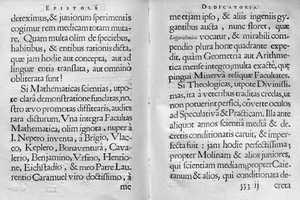 EPISTOLA
dereximus, & juniorum sperimenti
cogimur rem medicam totam muta-
re. Quam mutationem de speciebus,
habitibus, & entibus rationis dicta,
que jam hodie aut concepta, aut ad
linguæ entia translata, aut omnino
obliterata sunt!
Si Mathematicas scientias, utpo-
te clarâ demonstratione fundatas, no-
stro ævo promotas differuisti, audies
rara dicturum. Vna integra Facultas
Mathematica, olim ignota, nuper à
I. Nepero inventa, à Brigio, Vlac-
co, Keplero, Bonaventurâ, Cava-
lerio, Benjamino, Vrsino, Henrio-
ne, Eichstadio, & meo Patre Lau-
rentio Caramuel viro doctissimo, à
me
DEDICATORIA.
me etiam ipso, & aliis ingeniis gy-
gantibus aucta, nunc floret, quæ
vocatur, & mirabili com-
pendio plura hore quadrante expe-
dit, quàm Geometra aut Arithme-
tica mense integro; multa exacte, quæ
pingui Minervâ reliquæ Facultates.
Si Theologicas, utpote Divinissi-
mas, ità à veteribus traditas credas, ut
non potuerint perfici, converte oculos
ad Speculativam & Practicam. Illa ante
aliquot annos scientiâ mediâ & de-
cretis conditionatis caruit, & imper-
fecta fuit: jam hodie perfectissima;
propter Molinam & alios juniores,
qui scientiam mediam propter Caie-
tanum & alios, qui conditionata de-
333 ij
creta